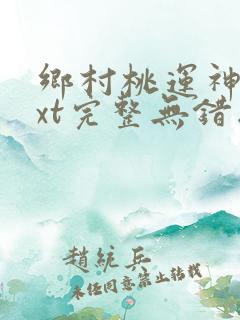 鄉村桃運神
xt完整無錯
趙統兵
未任同意禁止轉載